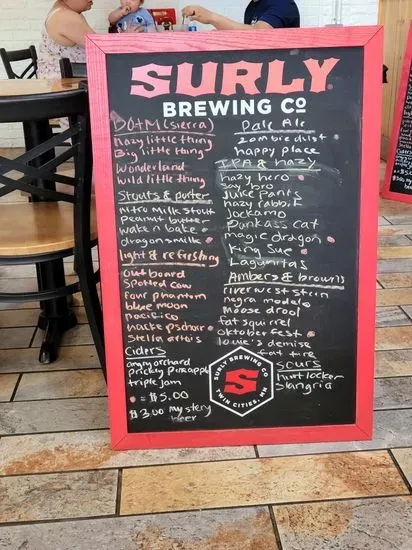 SURLY
BREWING CO
BOTM (sierra)
hazy little thing
Big little thing
Wonderland
Wild little thing
Stouts & porter
nitro Milk stout
Peanut butter
wake n bake
dragonsmilk
light & refreshing
Outboard
Spotted cow
four phantom
blue moon
pacifico
hacker pschorr
Stella artois
Ciders
angry orchard
Prickly pineapple
triple jam
= $5.00
$3.00 mystery
beer
Pale Ale
zombie dust
happy place
IPA & hazy
hazy hero
say bro
Juice pants
hazy rabbit
Jockamo
Punkass cat
magic dragon
King Sue
Lagunitas
Ambers & browns
riverwest stein
negra modelo
Moose drool
fat squirrel
oktoberfest
louie's demise
fat tire
Sours
hint locker
Slangria
SURLY BREWING CO
S
TWIN CITIES, MN